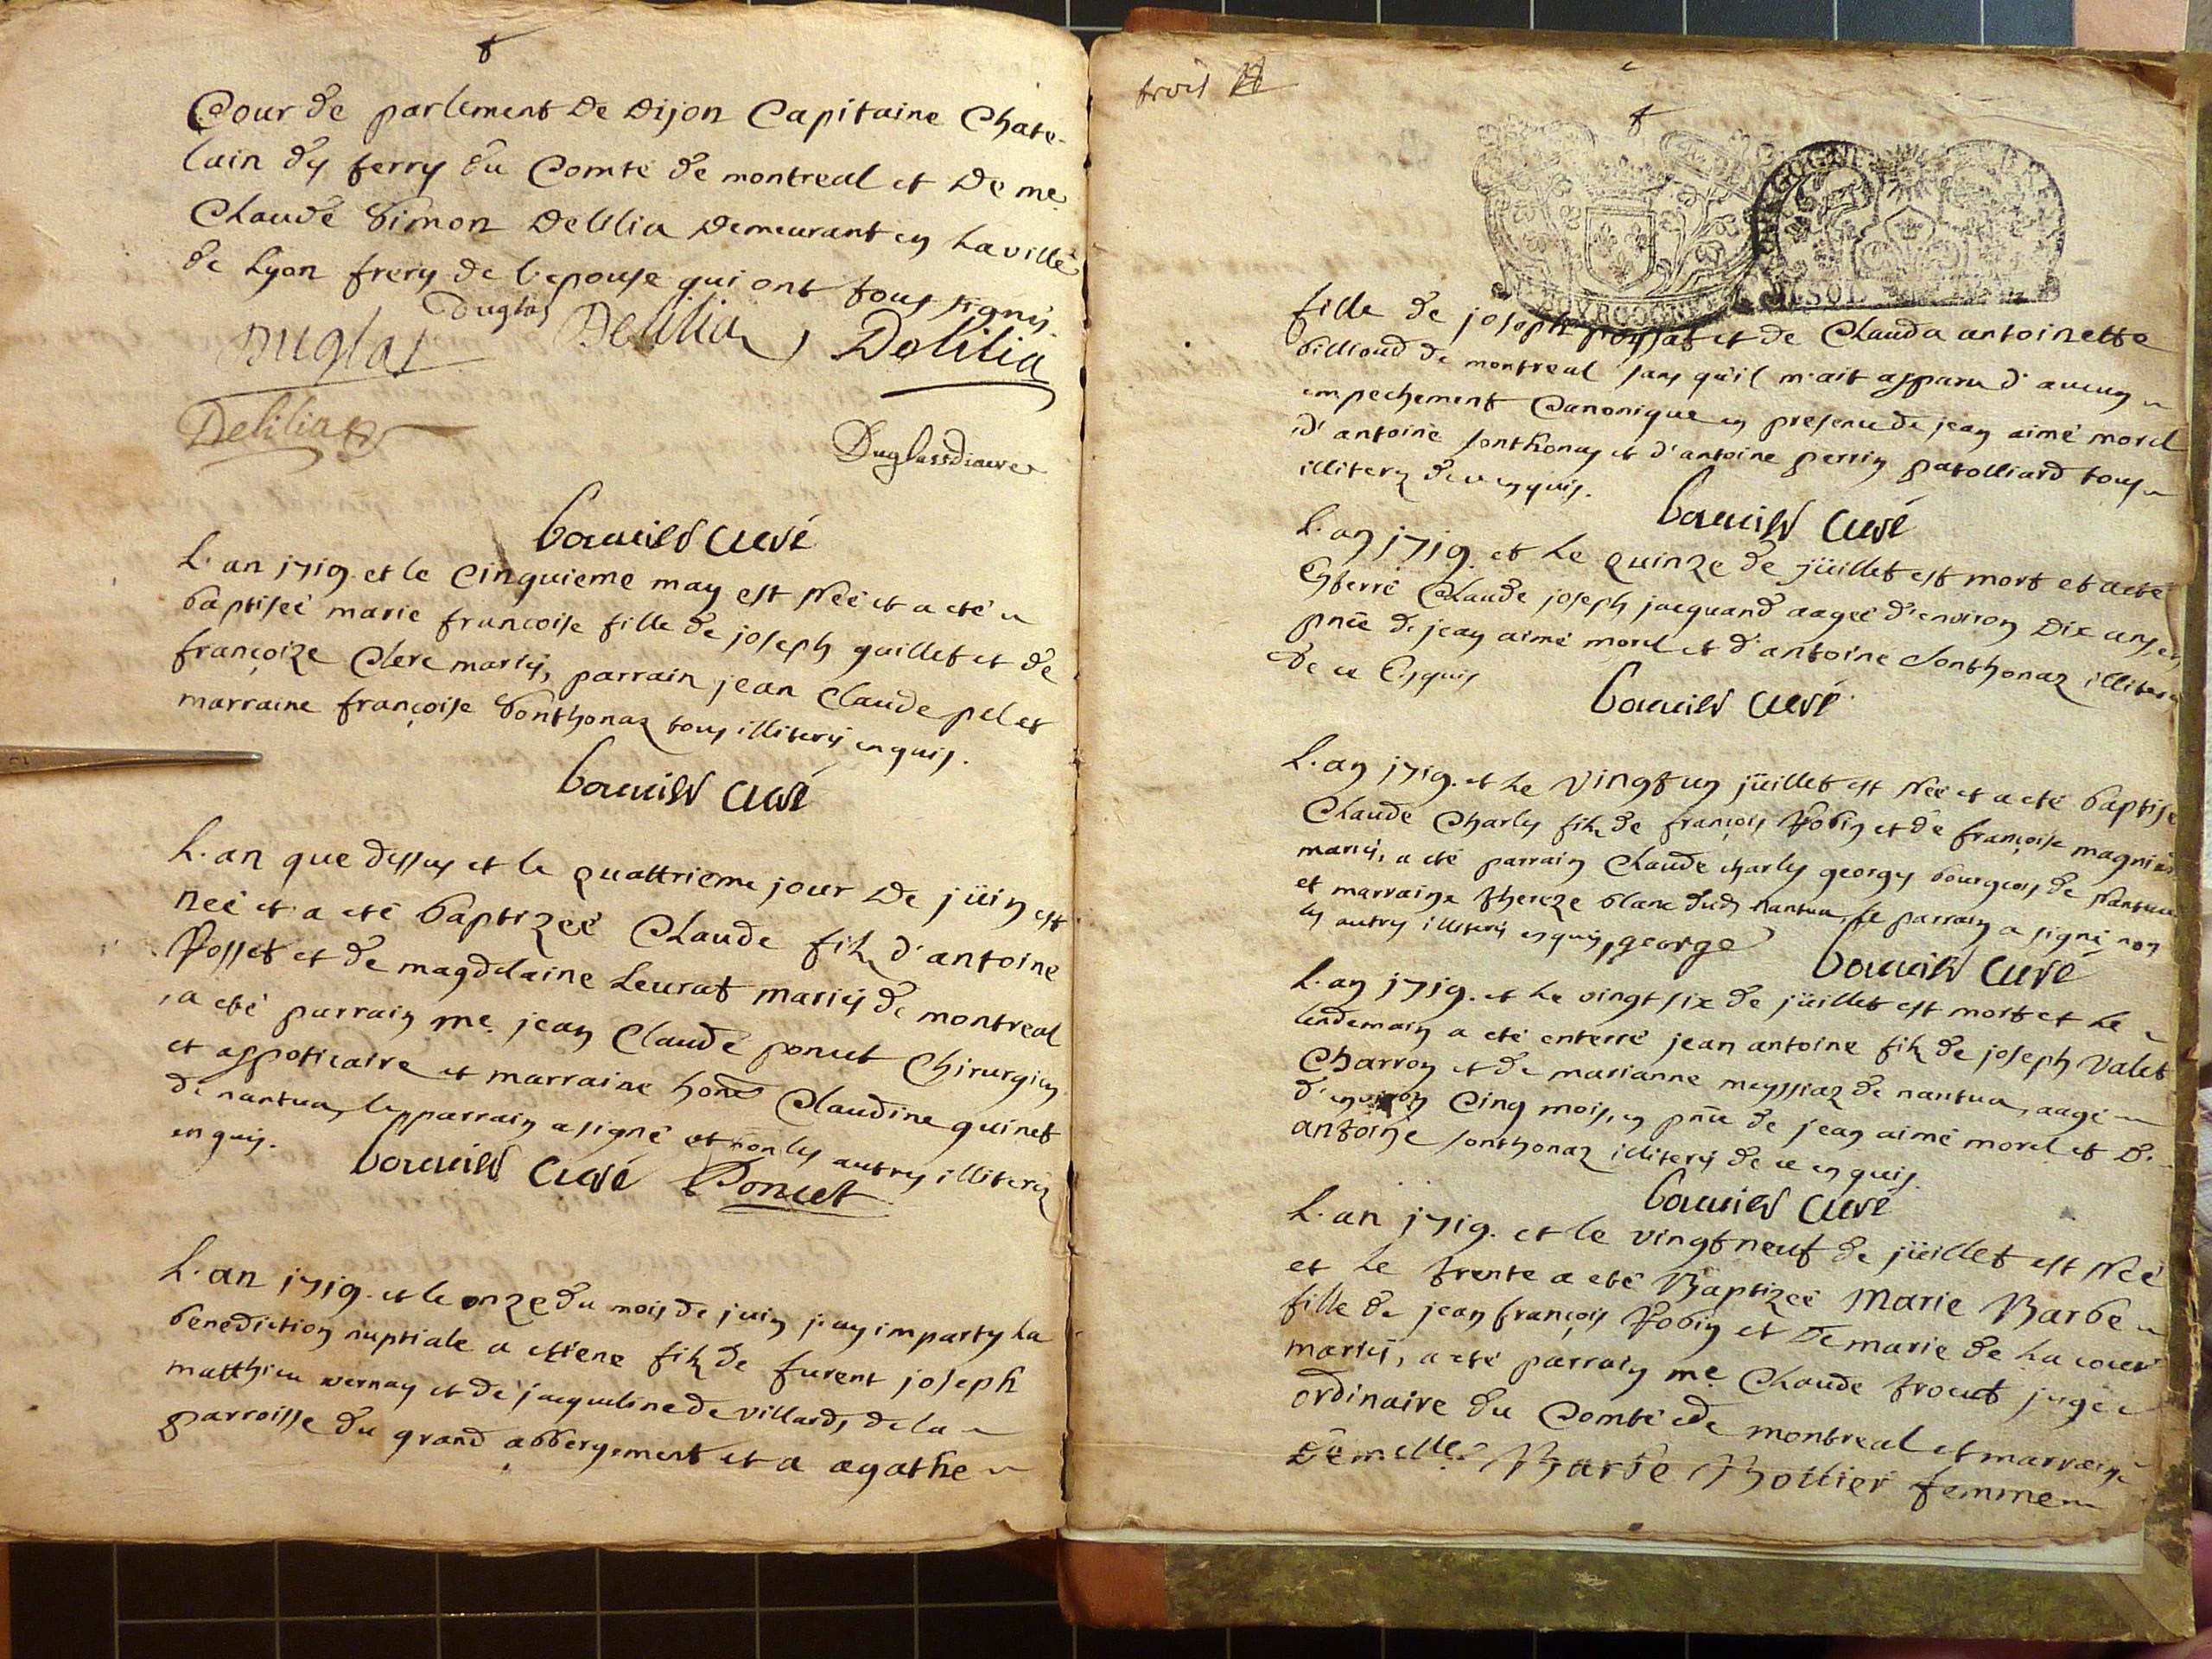 Cour de parlement De Dijon Capitaine Chate-
lain des terres du Comté de montreal et De me.
Claude Simon Delilia Demeurant en La ville
de Lyon freres de l'epouse qui ont tous signés.
Duglas
Duglas Delilia Delilia
Delilia
curé
L'an 1719. et le Cinquieme may est Née et a eté
baptiseé marie francoise fille de joseph guillet et de
françoize Clerc mariés, parrain jean Claude pelet
marraine françoise Sonthonaz tous illiterés enquis.
curé
L'an que dessus et le quattrieme jour De jüin est
neé et a eté baptizeé Claude fils d'antoine
Posset et de magdelaine Leurat mariés de montreal
, a eté parrain me. jean Claude poncet Chirurgien
et appoticaire et marraine hone Claudine quinet
de nantua, le parrain a signé et non les autres illiterez
enquis.
curé Poncet
L'an 1719. et le onze du mois de juin j'ay imparty La
benediction nuptiale a etiene fils de furent joseph
matthieu vernay et de jacqueline De villards de la
parroisse du grand abbergement et a agathe
trois
BOURGOGNE
fille de joseph et de Clauda antoinette
billioud de montreal sans qu'il m'ait apparu d'aucun
empechement Canonique en presence de jean aimé morel
d'antoine sonthonaz et d'antoine perrin patolliard tous
illiterez de ce enquis.
curé
L'an 1719. et Le quinze de jüillet est mort et a eté
Enterré Claude joseph jacquand aageé d'environ Dix ans, en
pnce de jean aimé morel et d'antoine Sonthonaz illiterés
de ce Enquis
curé
L'an 1719. et Le vingt un jüillet est Neé et a eté baptisé
Claude Charles fils de françois Robin et de françoise
mariés, a eté parrain Claude charles george bourgeois de Nantua
et marraine thereze blanc dud. nantua, le parrain a signé non
les autres illiterés enquis, george curé
L'an 1719. et Le vingt six de jüillet est mort et Le
lendemain a eté enterré jean antoine fils de joseph Valet
Charron et de marianne meyssiaz de nantua, aagé
d'environ Cinq mois, en pnce de jean aimé morel et D'
antoine sonthonaz illiterés de ce enquis.
curé
L'an 1719. et le vingt neuf de jüillet est Neé
et Le trente a eté Baptizeé Marie Barbe
fille de jean françois Robin et De marie de La cour
mariés, a eté parrain me. Claude trocut juge
ordinaire du Comté de montreal et marraine
Demelle. Barbe Bollier femme